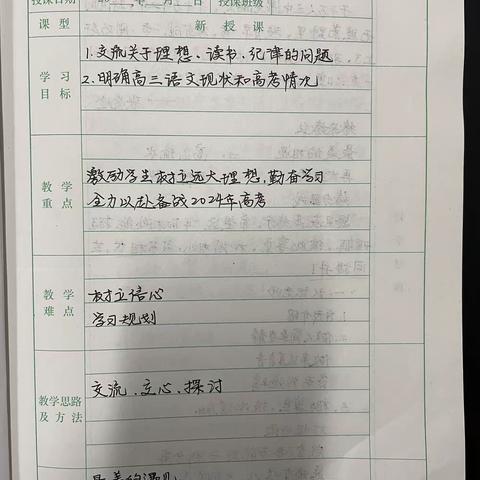 授课日期 年 月 日 授课班级
课型 新授课
学习目标
1.交流关于理想、读书、纪律的问题
2.明确高三语文现状和高考情况
教学重点
激励学生树立远大理想,勤奋学习
全力以赴备战2024年高考
教学难点
树立信心
学习规划
教学思路及方法
交流、交心、探讨